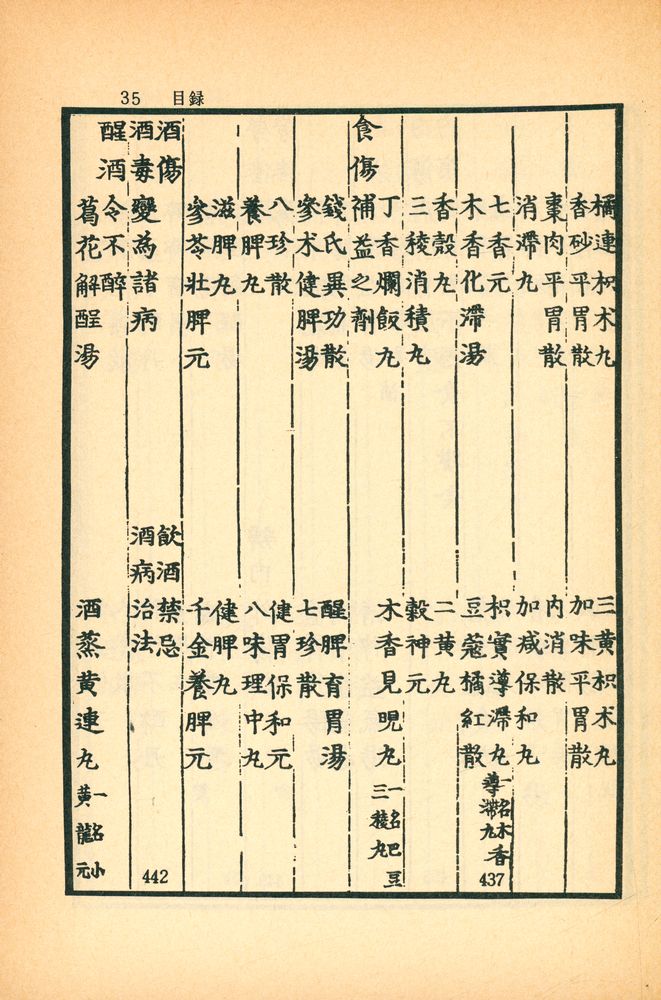 35 目録
橘連枳术丸 三黃枳术丸
香砂平胃散 加味平胃散
棗肉平胃散 內消散
消滯丸 加减保和丸
七香元 枳實導滯丸 一名木香導滯丸 437
木香化滯湯 豆蔻橘紅散
香殼丸 二黃丸
三稜消積丸 穀神元
丁香爛飯丸 木香見晛丸 一名巴豆三稜丸
食傷補益之劑
錢氏異功散 醒脾育胃湯
參术健脾湯 七珍散
八珍散 健胃保和元
養脾丸 八味理中丸
滋脾丸 健脾丸
參苓壯脾元 千金養脾元
酒傷 飲酒禁忌
酒毒變為諸病 酒病治法 442
醒酒令不醉
葛花解酲湯 酒蒸黃連丸 一名小黃龍元